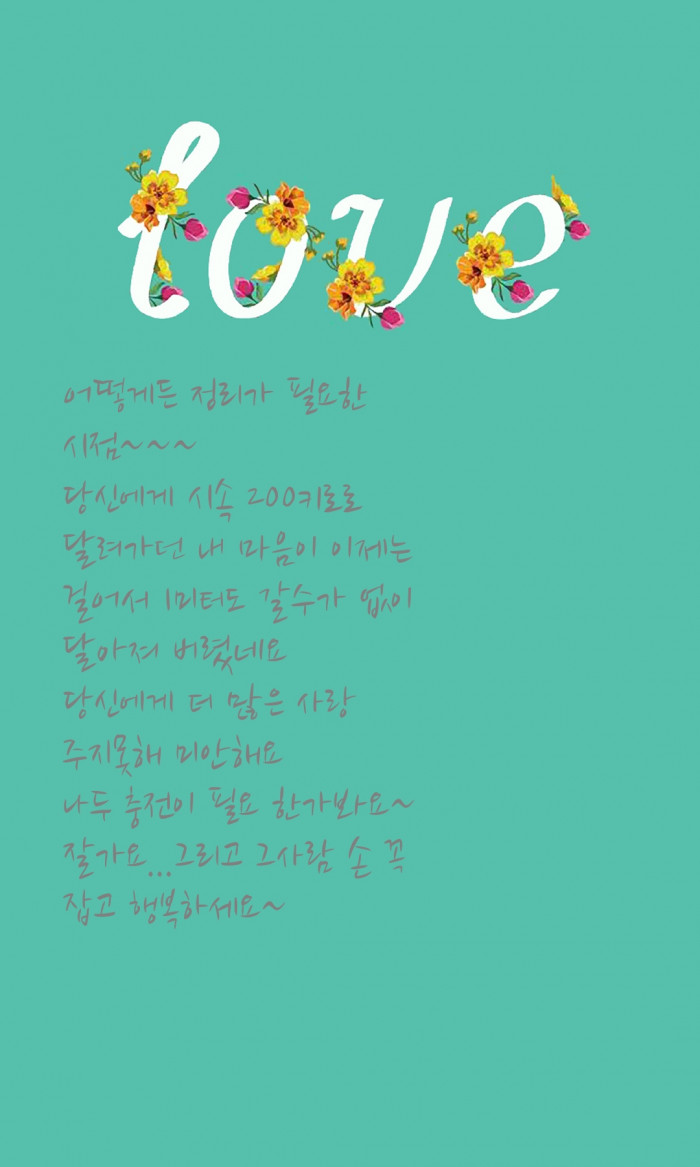 love
어떻게든 정리가 필요한
시점~~~
당신에게 시속 200키로로
달려가던 내 마음이 이제는
걸어서 1미터도 갈수가 없이
닳아져 버렸네요
당신에게 더 많은 사랑
주지못해 미안해요
나두 충전이 필요 한가봐요~
잘가요...그리고 그사람 손 꼭
잡고 행복하세요~